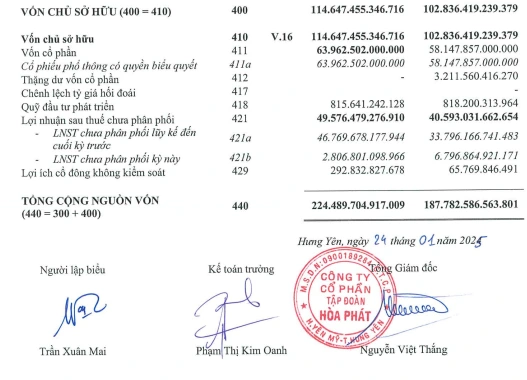 VỐN CHỦ SỞ HỮU (400 = 410) 400 114.647.455.346.716 102.836.419.239.379
Vốn chủ sở hữu 410 V.16 114.647.455.346.716 102.836.419.239.379
Vốn cổ phần 411 63.962.502.000.000 58.147.857.000.000
Cổ phiếu phổ thông có quyền biểu quyết 411a 63.962.502.000.000 58.147.857.000.000
Thặng dư vốn cổ phần 412 - 3.211.560.416.270
Chênh lệch tỷ giá hối đoái 417 - -
Quỹ đầu tư phát triển 418 815.641.242.128 818.200.313.964
Lợi nhuận sau thuế chưa phân phối 421 49.576.479.276.910 40.593.031.662.654
- LNST chưa phân phối lũy kế đến cuối kỳ trước 421a 46.769.678.177.944 33.796.166.741.483
- LNST chưa phân phối kỳ này 421b 2.806.801.098.966 6.796.864.921.171
Lợi ích cổ đông không kiểm soát 429 292.832.827.678 65.769.846.491
TỔNG CỘNG NGUỒN VỐN (440 = 300 + 400) 440 224.489.704.917.009 187.782.586.563.801
Hưng Yên, ngày 24 tháng 01 năm 2025
Người lập biểu Kế toán trưởng Tổng Giám đốc
M.S.D.N: 0900189284
CÔNG TY
CỔ PHẦN
TẬP ĐOÀN
HÒA PHÁT
H.YÊN MỸ-T.HƯNG YÊN
Trần Xuân Mai Phạm Thị Kim Oanh Nguyễn Việt Thắng